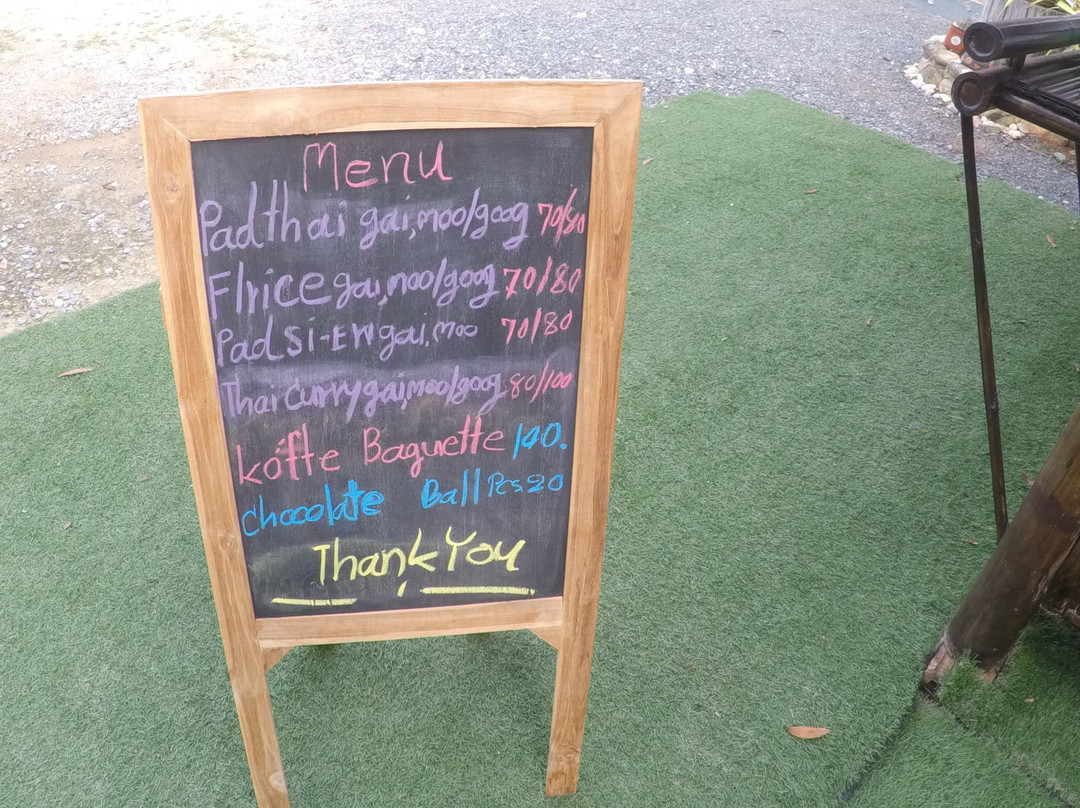 Menu
Padthai gai,moo/goog 70/80
F/rice gai,moo/goog 70/80
Pad Si-EW gai,moo 70/80
Thai Curry gai,moo/goog 80/100
köfte Baguette 140.
Chocolate Ball Pcs.20
Thank You